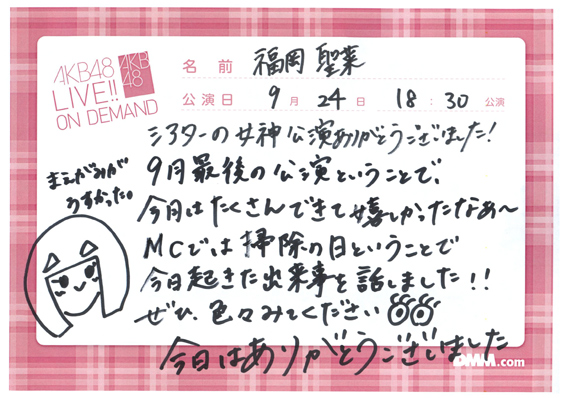 AKB48
LIVE!!
ON DEMAND
AKB
48
名前 福岡 聖菜
公演日 9月24日 18:30公演
シアターの女神公演ありがとうございました!
9月最後の公演ということで、
今月はたくさんできて嬉しかったなぁ〜
MCでは掃除の日ということで
今日起きた出来事を話しました!!
ぜひ、色々みてください
今日はありがとうございました
まえがみが
うすかった。
DMM.com